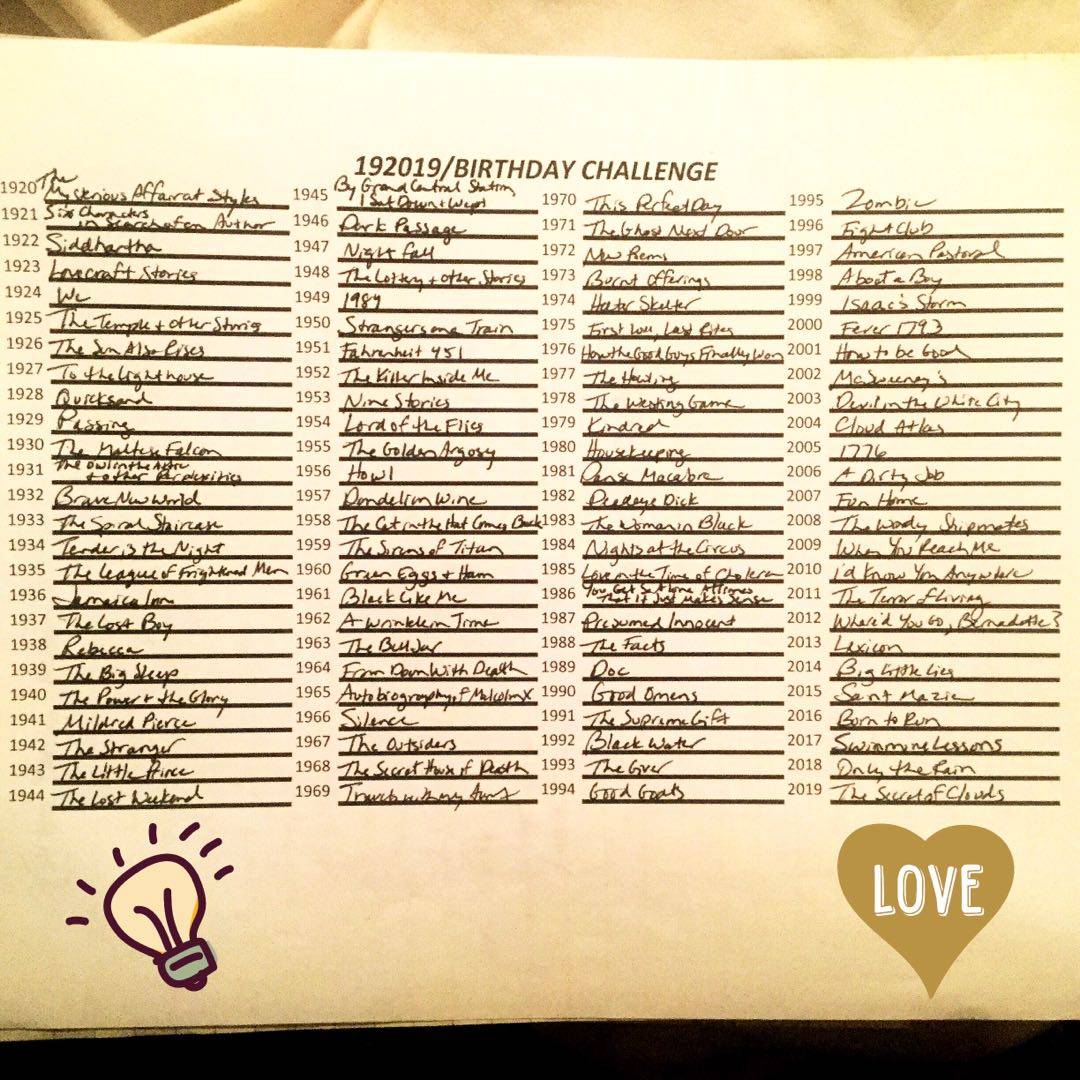 192019/BIRTHDAY CHALLENGE
1920 The
Mysterious Affair at Styles
1921 Six Characters
in Search of an Author
1922 Siddhartha
1923 Lovecraft Stories
1924 We
1925 The Temple + Other Stories
1926 The Sun Also Rises
1927 To the Lighthouse
1928 Quicksand
1929 Passing
1930 The Maltese Falcon
1931 The Owl in the Attic
+ other Perplexities
1932 Brave New World
1933 The Spiral Staircase
1934 Tender is the Night
1935 The League of Frightened Men
1936 Jamaica Inn
1937 The Lost Boy
1938 Rebecca
1939 The Big Sleep
1940 The Power + the Glory
1941 Mildred Pierce
1942 The Stranger
1943 The Little Prince
1944 The Lost Weekend
1945 By Grand Central Station
I Sat Down + Wept
1946 Dark Passage
1947 Night fall
1948 The Lottery + other Stories
1949 1984
1950 Strangers on a Train
1951 Fahrenheit 451
1952 The Killer Inside Me
1953 Nine Stories
1954 Lord of the Flies
1955 The Golden Argosy
1956 Howl
1957 Dandelion Wine
1958 The Cat in the Hat Comes Back
1959 The Sirens of Titan
1960 Green Eggs + Ham
1961 Black Like Me
1962 A Wrinkle in Time
1963 The Bell Jar
1964 From Doon With Death
1965 Autobiography of Malcolm X
1966 Silence
1967 The Outsiders
1968 The Secret House of Death
1969 Travels with my Aunt
1970 This Perfect Day
1971 The Ghost Next Door
1972 New Poems
1973 Burnt Offerings
1974 Helter Skelter
1975 First Love, Last Rites
1976 How the Good Guys Finally Won
1977 The Howling
1978 The Westing Game
1979 Kindred
1980 Housekeeping
1981 Danse Macabre
1982 Deadeye Dick
1983 The Woman in Black
1984 Nights at the Circus
1985 Love in the Time of Cholera
1986 You Get So Alone At Times
That it Just Makes Sense
1987 Presumed Innocent
1988 The Facts
1989 Doc
1990 Good Omens
1991 The Supreme Gift
1992 Black Water
1993 The Giver
1994 Good Goats
1995 Zombie
1996 Fight Club
1997 American Pastoral
1998 About a Boy
1999 Isaac's Storm
2000 Fever 1793
2001 How to be Good
2002 McSweeney's
2003 Devil in the White City
2004 Cloud Atlas
2005 1776
2006 A Dirty Job
2007 Fun Home
2008 The Wordy Shipmates
2009 When You Reach Me
2010 I'd Know You Anywhere
2011 The Terror of Living
2012 Where'd You Go, Bernadette?
2013 Lexicon
2014 Big Little Lies
2015 Saint Mazie
2016 Born to Run
2017 Swimming Lessons
2018 Only the Rain
2019 The Secret of Clouds
LOVE